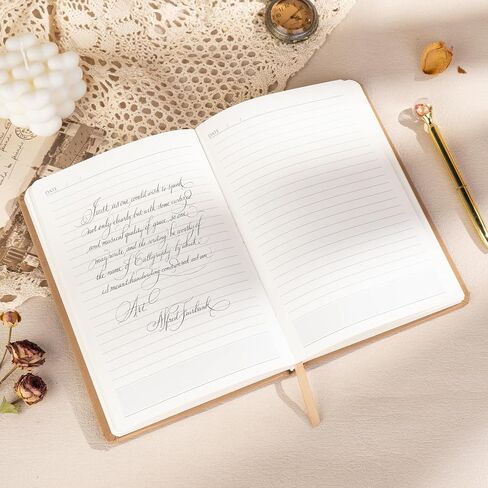 DATE / /
Just as one would wish to speak
not only clearly, but with some
and musical quality of grace, so one
may write, and the writing be worthy of
the name of Calligraphy by which
is meant handwriting considered as an
Art.
Alfred Fairbank
DATE / /